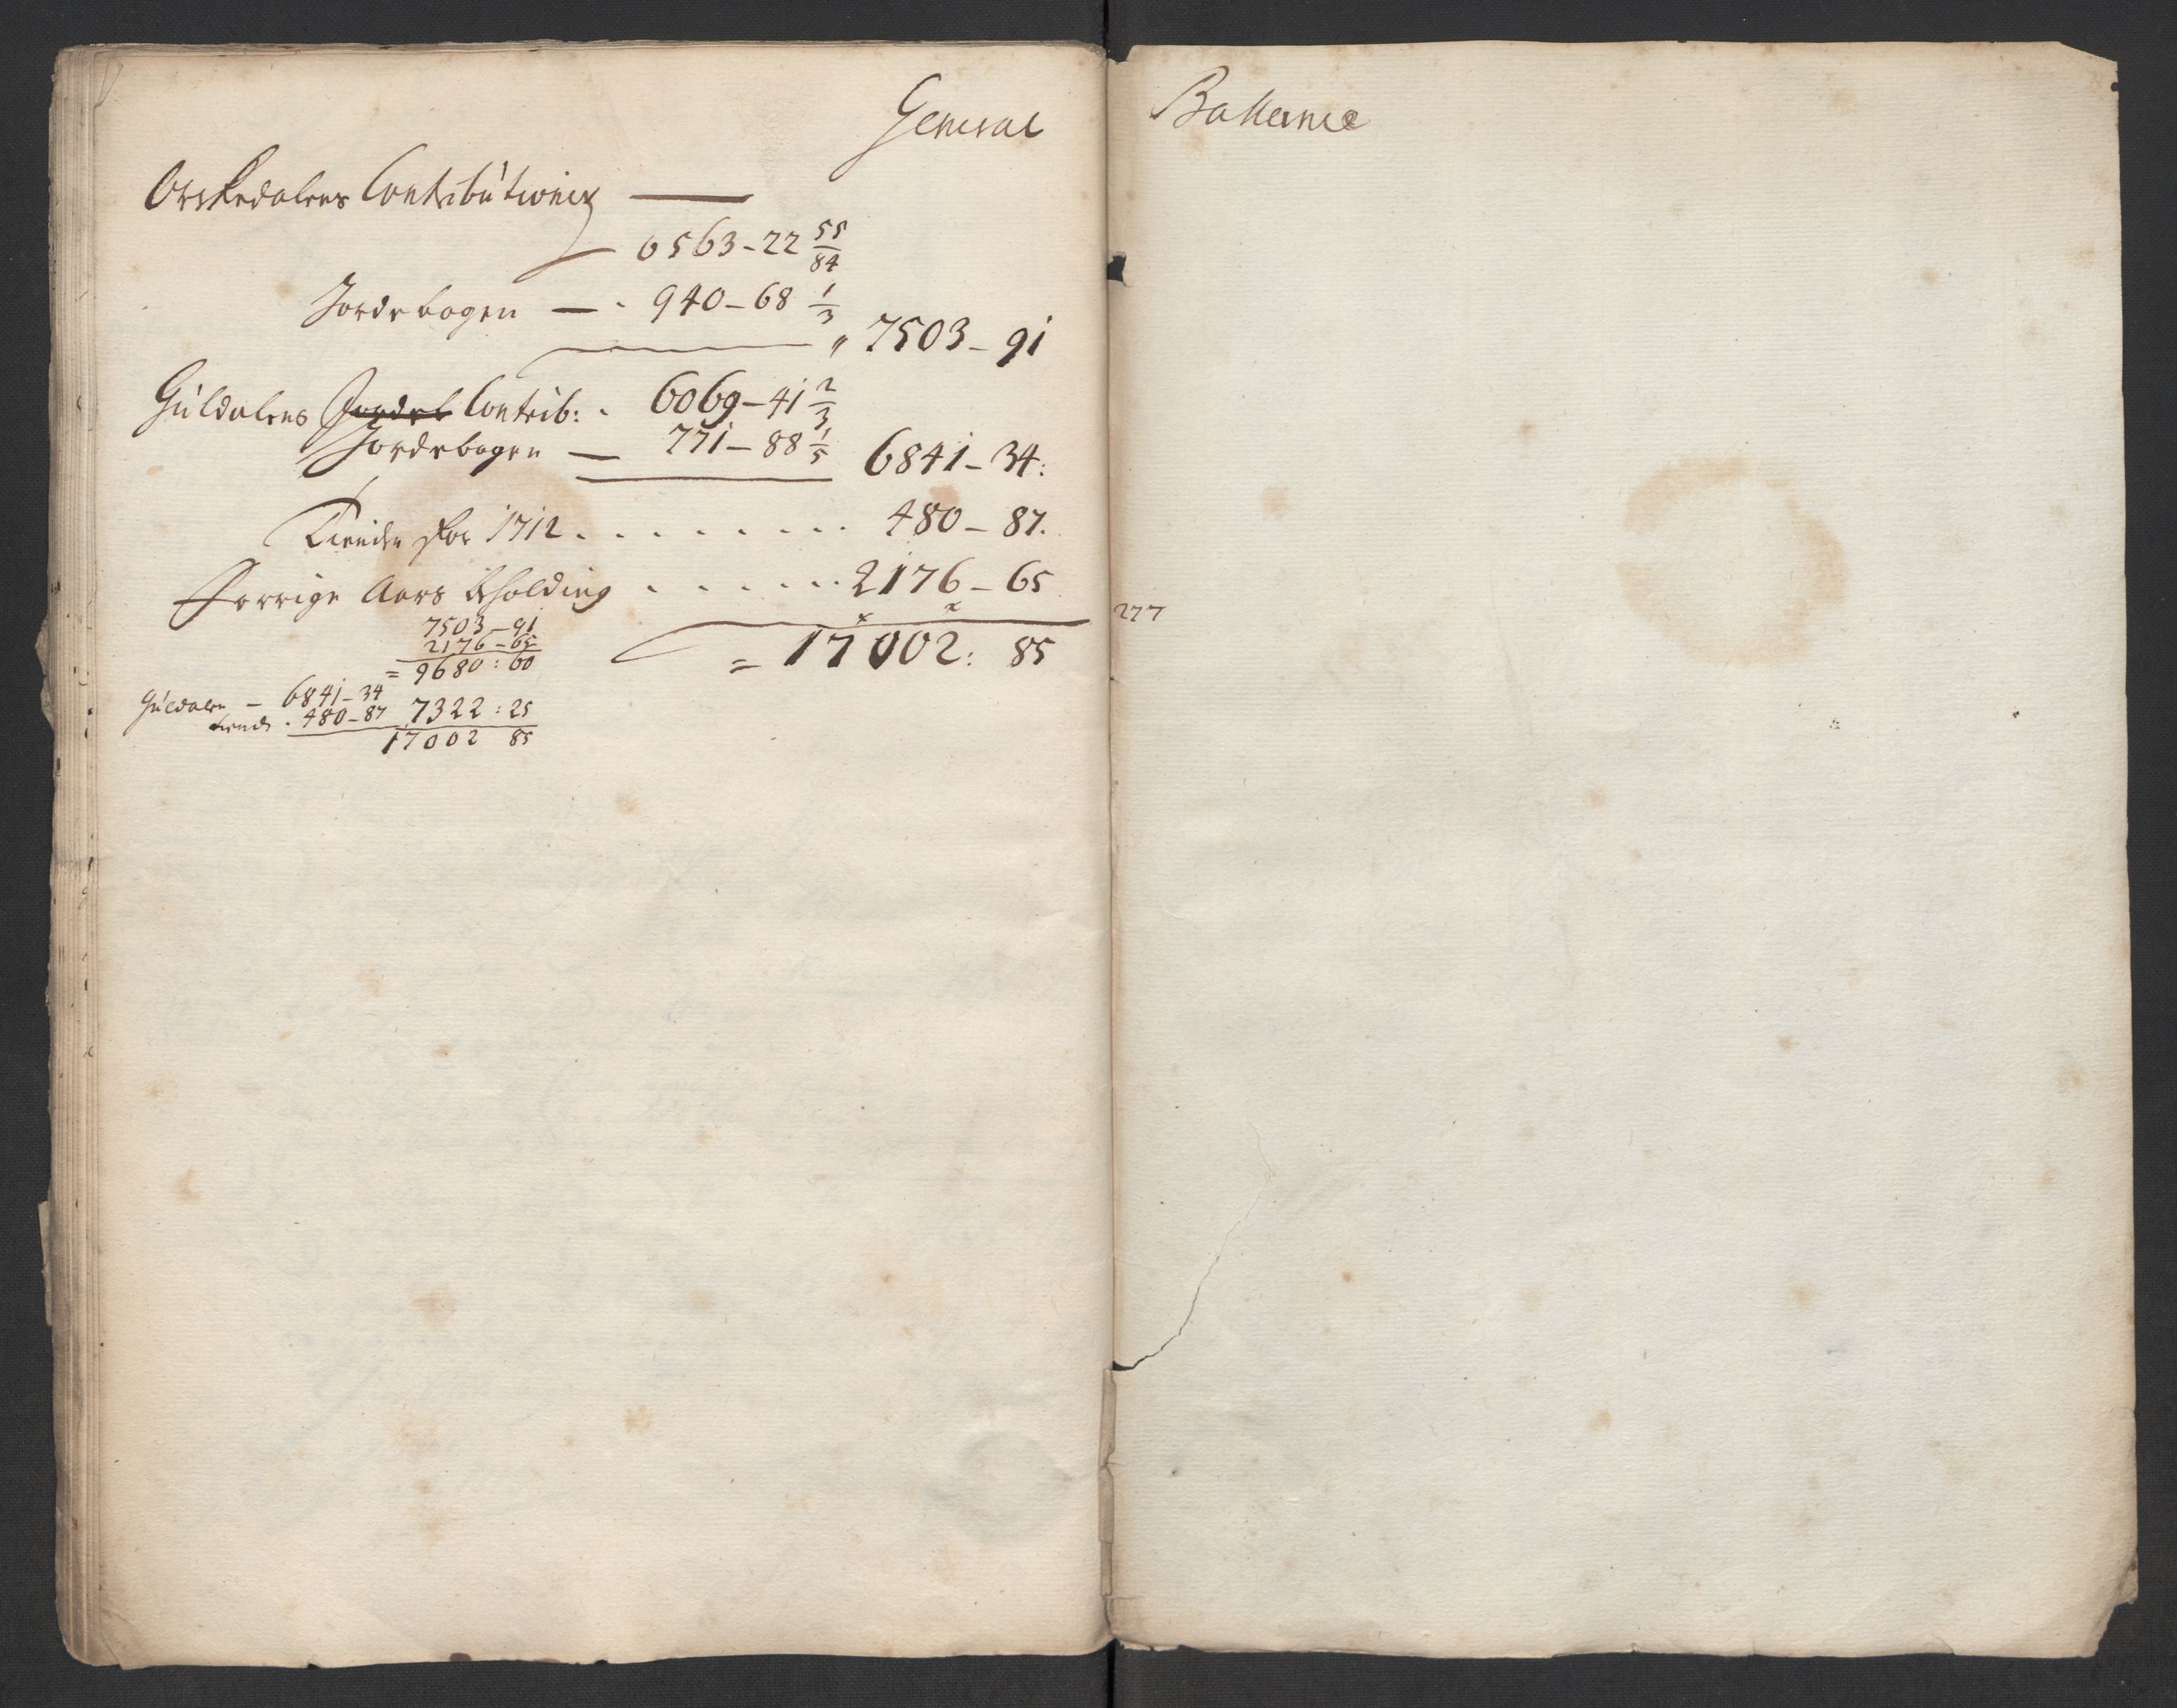 General Ballance
Orckedalens Contributioner
6563-22 55/84
Jordebogen — . 940-68 1/3
" 7503-91
Guldalens Jordeb Contrib: . 6069-41 2/3
Jordebogen — 771-88 1/5 6841-34:
Tienden for 1712 . . . . . . . . . 480-87.
Forrige Aars Beholding . . . . . . . 2176-65
= 17002: 85
7503-91
2176-65
= 9680:60
Guldalen — 6841-34
tiende . 480-87 7322:25
17002 85
277